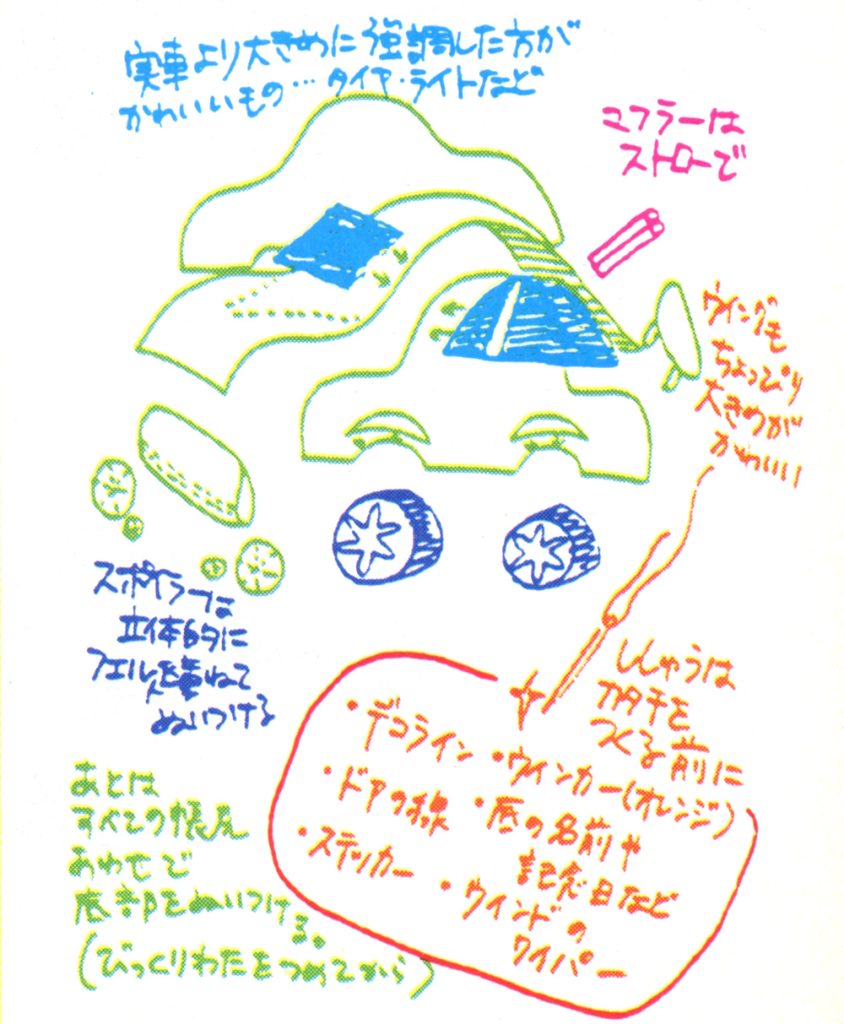 実車より大きめに強調した方が
かわいいもの…タイヤ・ライトなど
マフラーは
ストローで
ウイングも
ちょっぴり
大きめが
かわいい
スポイラーは
立体的に
フエルトを重ねて
ぬいつける
ししゅうは
カタチを
つくる前に
・デコライン
・ウインカー(オレンジ)
・ドアの線
・彼の名前や
記念日など
・ステッカー
・ウインドの
ワイパー
あとは
すべての帳尻
あわせで
底部をぬいつける。
(びっくりわたをつめてから)